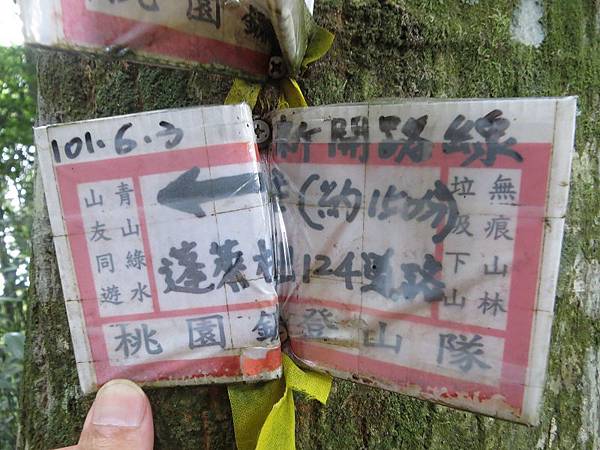 桃園
101.6.3
新開路線
(約15分)
蓬萊 124道路
青山綠水
山友同遊
無痕山林
垃圾下山
桃園 登山隊